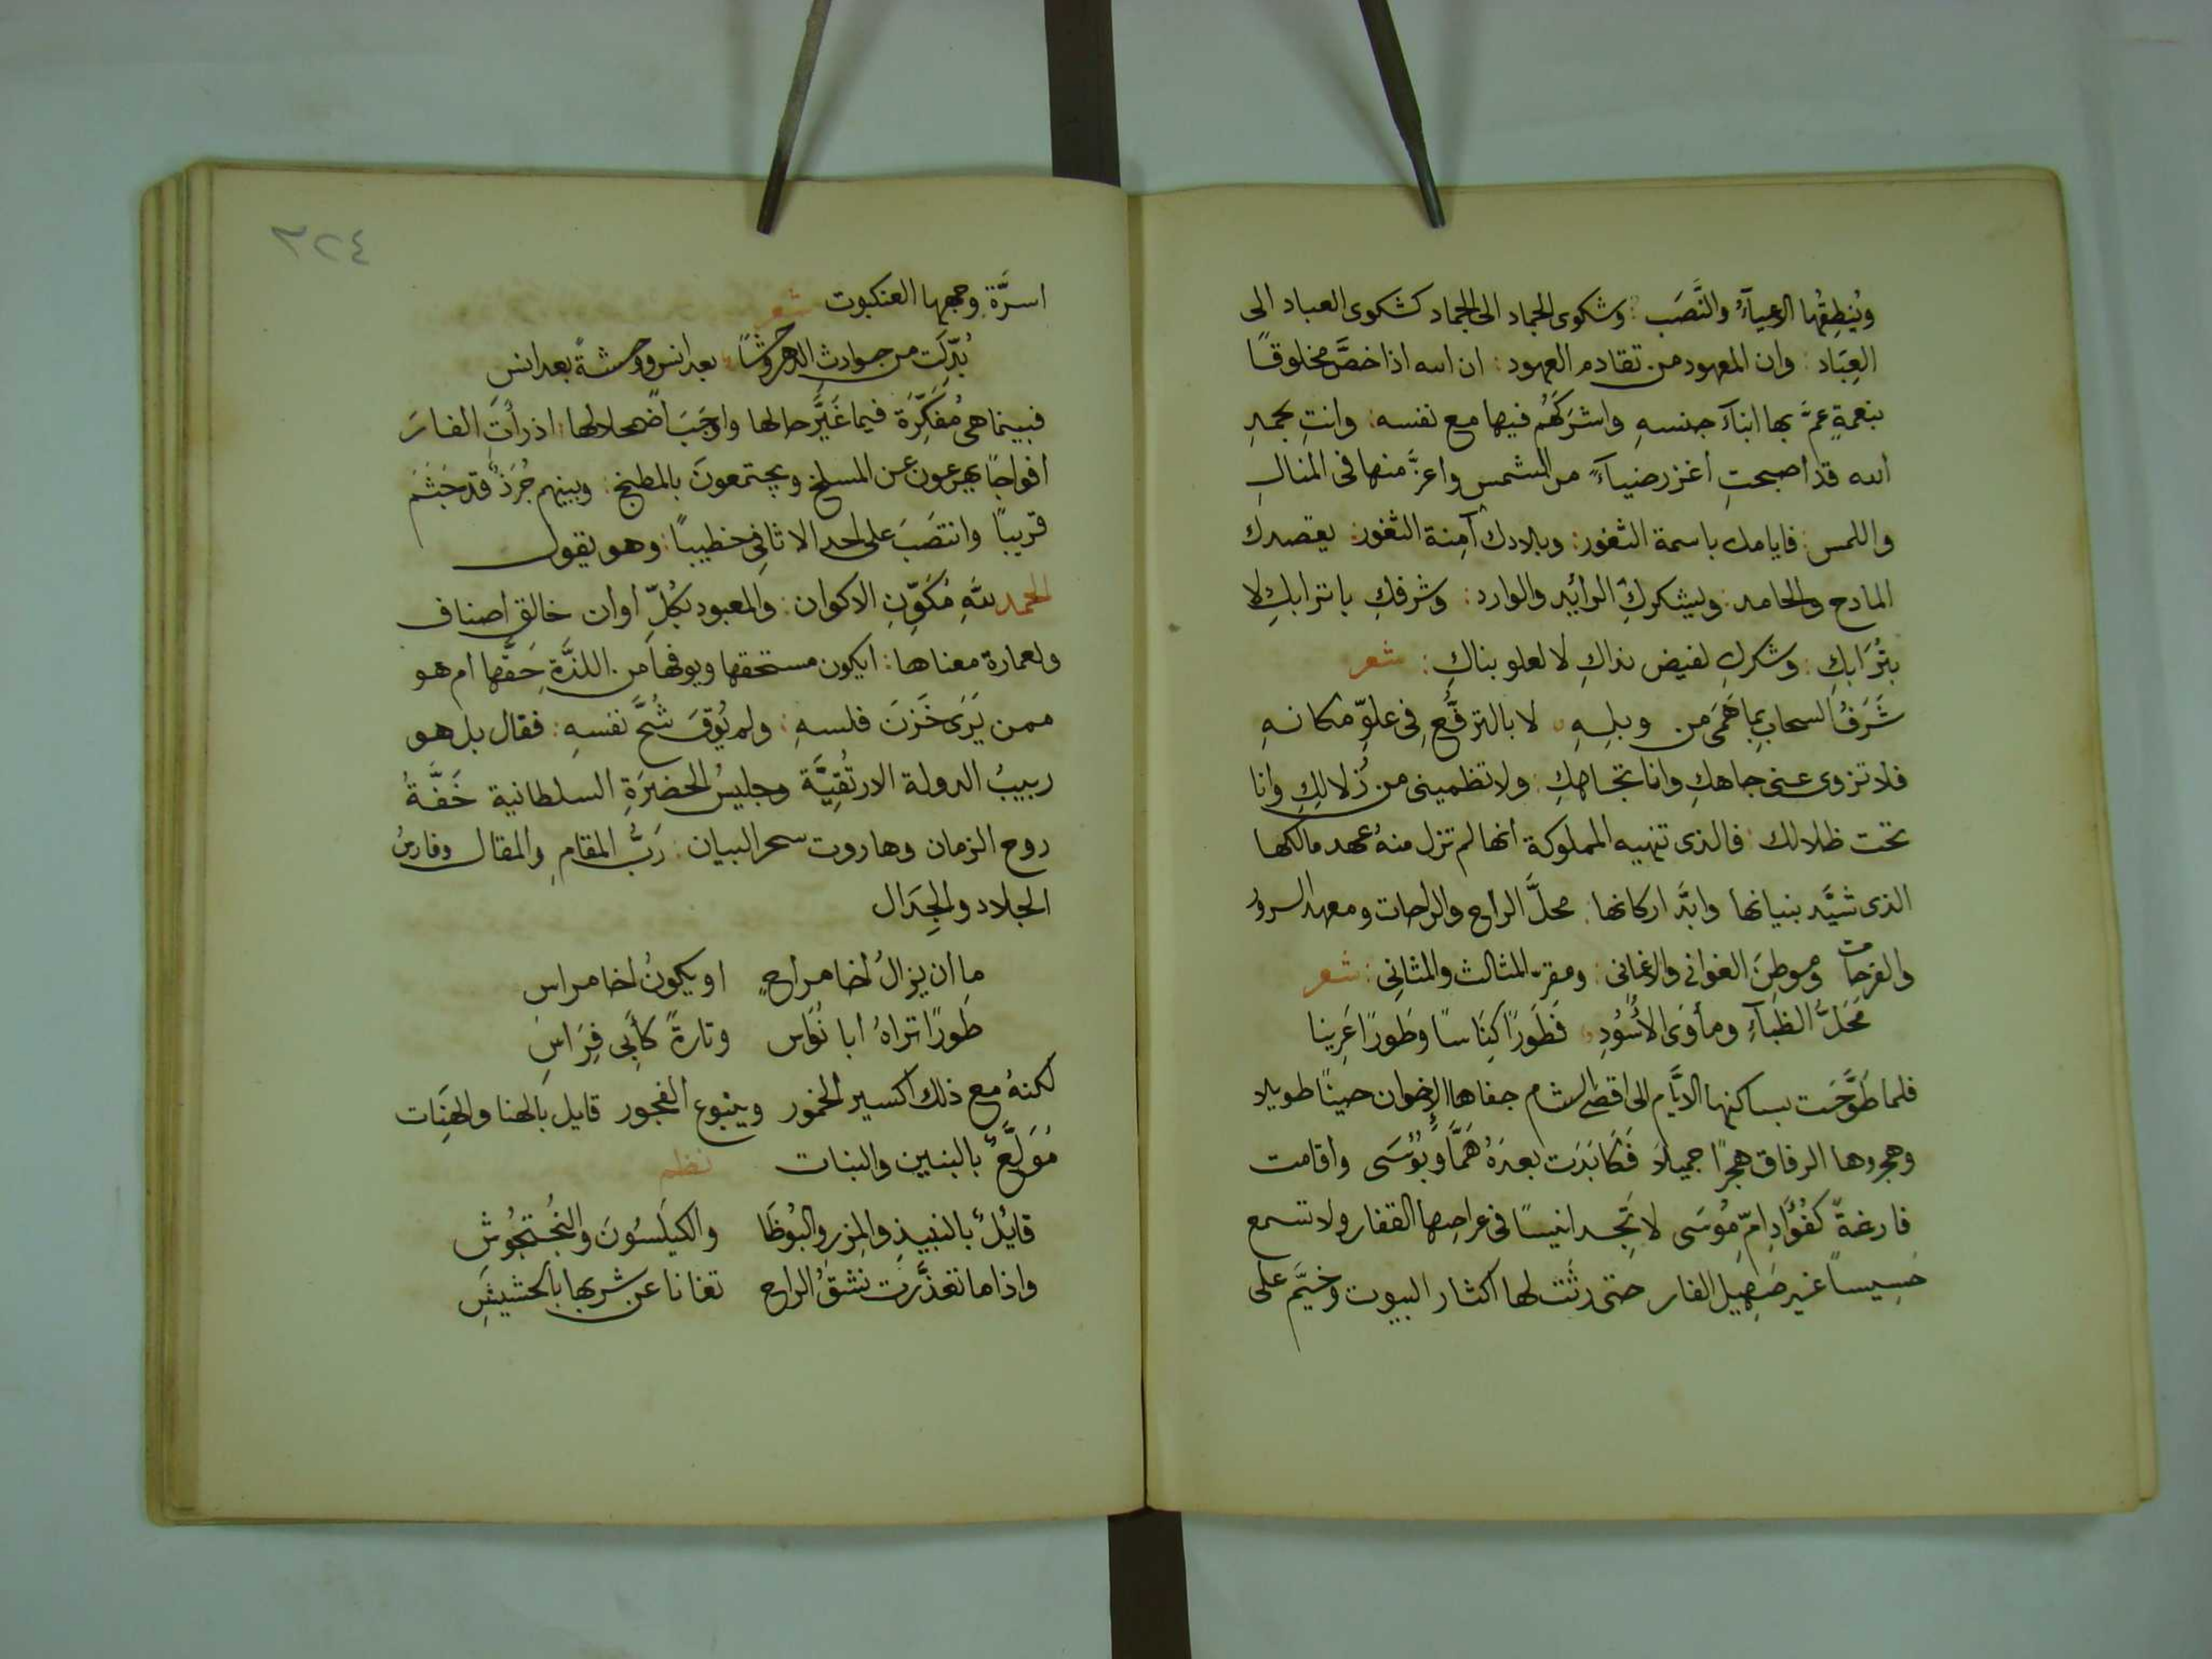 ويُنطِقُها الاعياءُ والنَّصَب : وشكوى الجماد الى الجماد كشكوى العباد الى
العِبَاد : وان المعهود من تقادم العهود : ان الله اذا خصَّ مخلوقًا
بنعمةٍ عمَّ بها ابناءَ جنسهِ واشرَكَهُم فيها مع نفسه : وانتِ بحمدِ
الله قد اصبحتِ اغزر ضياءً من الشمس واعزَّ منها فى المنال
واللمس : فايامك باسمة الثغور : وبلادك آمنة الثغور : يقصدك
المادح والحامد : ويشكركِ الرائد والوارد : وشرفكِ باترابكِ لا
بتُرَابكِ : وشكركِ لفيض نداكِ لا لعلو بناكِ : شعر
شَرَفُ السحابِ بِما هَمَى من وبلِهِ لا بالترفُّعِ فى علوِّ مكانهِ
فلا تزوى عنى جاهكِ وانا تجاهكِ : ولا تظمينى من زُلالِكِ وانا
تحت ظلالك : فالذى تنهيه المملوكة انها لم تزل منذُ عهد مالكها
الذى شيَّد بنيانها وابَّد اركانها : محلَّ الراح والراحات ومعهد السرور
والفرحات وموطنَ الغوانى والاغانى : ومقرّ المثالث والمثانِى : شعر
مَحَلُّ الظباءِ ومأوَى الاُسُودِ فَطَورًا كِنَاسًا وطَورًا عَرِينا
فلما طَوَّحَت بساكنها الايَّام الى اقصى الشام جفاها الاخوان حينًا طويلا
وهجروها الرفاق هجرًا جميلاً فَكَابَدَت بعدَهُ هَمًّا وَبُوْسَى واقامت
فارغةً كفُوَادِ امِّ مُوسَى لا تَجِد انيسًا فى عراصها القفار ولا تسمع
حسيسًا غير صَهِيل الفار حتى رثَت لها اكثار البيوت وخيَّم على
٣٢٤
اسرَّة وجمعها العنكبوت شعر
بُدِّلَت من حوادثِ الدهر وحشًا بعد انس ووحشةً بعد انس
فبينما هى مُفَكِّرَة فيما غَيَّر حالها واوجَبَ اضمحلالها : اذ رأتِ الفارَ
افواجًا يهرعون عن المسلخ ويجتمعونَ بالمطبخ : وبينهم جُرَذٌ قد جَثَمَ
قريبًا وانتَصَبَ على احد الاثافِى خطيبًا : وهو يقول
الحمد للهِ مُكَوِّنِ الاكوان : والمعبود بكُلِّ اوان خالق اصناف
ولعمارة معناها : ايكون مستحقها ويوفها من اللذَّةِ حَقَّها ام هو
ممن يَرَى خَزنَ فلسهِ : ولم يُوقَ شُحَّ نفسهِ : فقال بل هو
ربيبُ الدولة الارتُقِيَّة وجليسُ الحضرَةِ السلطانية خَفَّةُ
روح الزمان وهاروت سحر البيان : رَبُّ المقامِ والمقال وفارسُ
الجلاد والجِدَال
ما ان يزالُ اخا مراحٍ او يكونُ اخا مراسِ
طَورًا تراهُ ابا نُوَاس وتارةً كاَبِى فِرَاسِ
لكنهُ مع ذلك اكسير الخمور وينبوع الفجور قايل بالهنا والهَنِات
مُوَلَّعٌ بالبنين والبنات نظم
قايُلٌ بالنبيذِ والمِزر والبُوظَا والكيلسُونَ والبُختجُوشِ
واذا ما تعذَّرت نشقُ الراح تغانا عن شربها بالحشيشِ